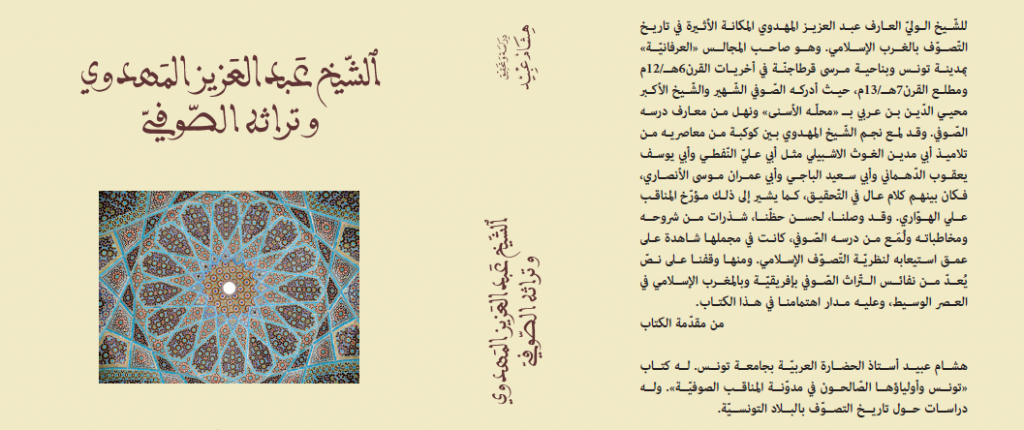 ٱلشّيخ عَبد العَزيز المَهدوي
وتراثه الصّوفيّ
دراسة وتحقيق
هشام عبيد
ٱلشّيخ عَبد العَزيز المَهدوي
وتراثه الصّوفيّ
للشّيخ الوليّ العارف عبد العزيز المهدوي المكانة الأثيرة في تاريخ
التّصوّف بالغرب الإسلامي. وهو صاحب المجالس «العرفانيّة»
بمدينة تونس وبناحية مرسى قرطاجنّة في أخريات القرن6هـ/12م
ومطلع القرن7هـ/13م، حيث أدركه الصّوفي الشّهير والشّيخ الأكبر
محيي الدّين بن عربي بـ «محلّه الأسنى» ونهل من معارف درسه
الصّوفي. وقد لمع نجم الشّيخ المهدوي بين كوكبة من معاصريه من
تلاميذ أبي مدين الغوث الاشبيلي مثل أبي عليّ النّفطي وأبي يوسف
يعقوب الدّهماني وأبي سعيد الباجي وأبي عمران موسى الأنصاري،
فكان بينهم كلام عال في التّحقيق، كما يشير إلى ذلك مؤرّخ المناقب
علي الهوّاري. وقد وصلنا، لحسن حظّنا، شذرات من شروحه
ومخاطباته ولُمَع من درسه الصّوفي، كانت في مجملها شاهدة على
عمق استيعابه لنظريّة التّصوّف الإسلامي. ومنها وقفنا على نصّ
يُعدّ من نفائس التّراث الصّوفي بإفريقيّة وبالمغرب الإسلامي في
العصر الوسيط، وعليه مدار اهتمامنا في هذا الكتاب.
من مقدّمة الكتاب
هشام عبيد أستاذ الحضارة العربيّة بجامعة تونس. له كتاب
«تونس وأولياؤها الصّالحون في مدوّنة المناقب الصوفيّة». وله
دراسات حول تاريخ التصوّف بالبلاد التونسيّة.